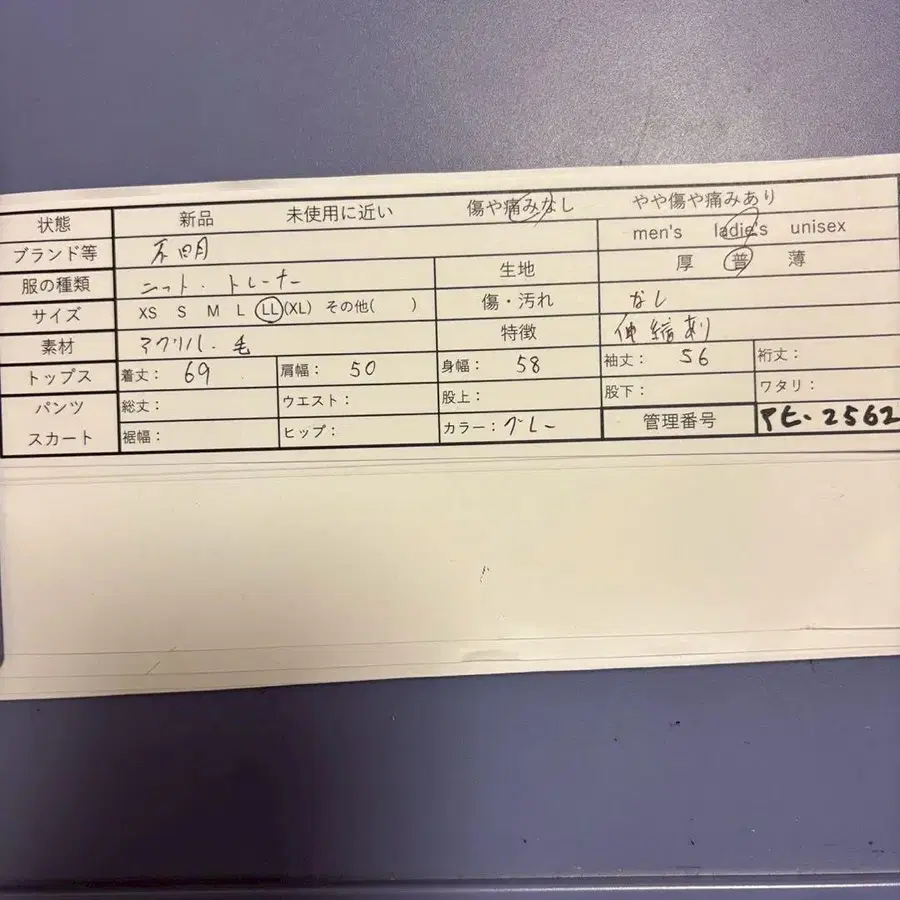 状態 新品 未使用に近い 傷や痛みなし やや傷や痛みあり
ブランド等 不明 men's ladie's unisex
服の種類 ニット・トレーナー 生地 厚 普 薄
サイズ XS S M L LL(XL) その他( ) 傷・汚れ なし
素材 アクリル・毛 特徴 伸縮あり
トップス 着丈: 69 肩幅: 50 身幅: 58 袖丈: 56 裄丈:
パンツ 総丈: ウエスト: 股上: 股下: ワタリ:
スカート 裾幅: ヒップ: カラー: グレー 管理番号 -2562